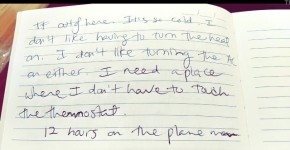 out of here. It is so cold. I
don't like having to turn the heat
on. I don't like turning the AC
on either. I need a place
where I don't have to touch
the thermostat.
12 hours on the plane